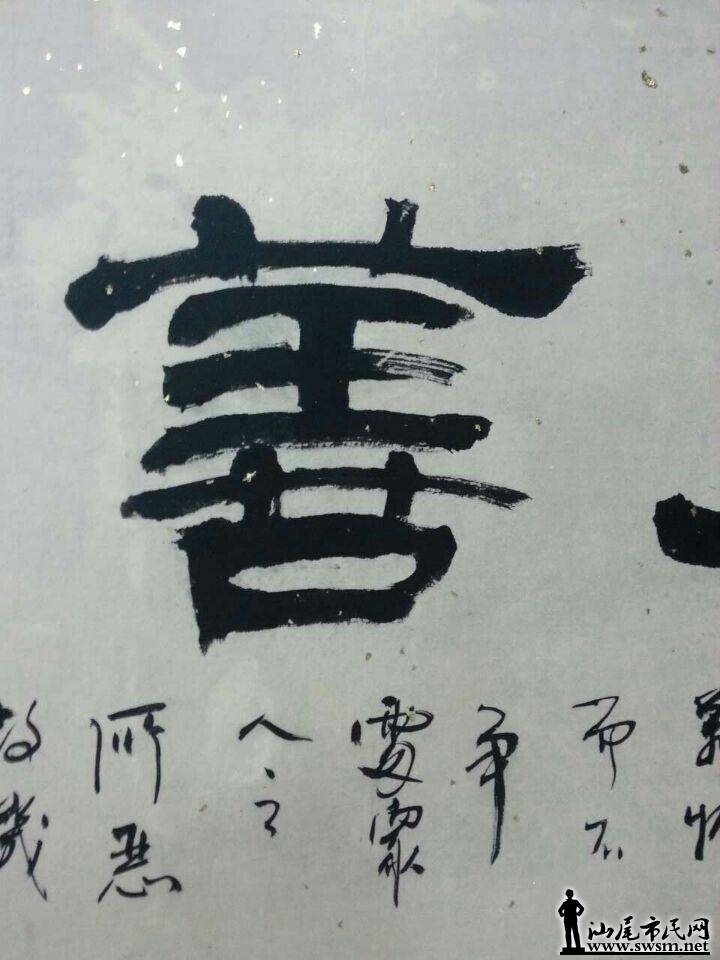 善
萬物
而不
争
處眾
人之
所惡
故幾
汕尾市民网
www.swsm.net